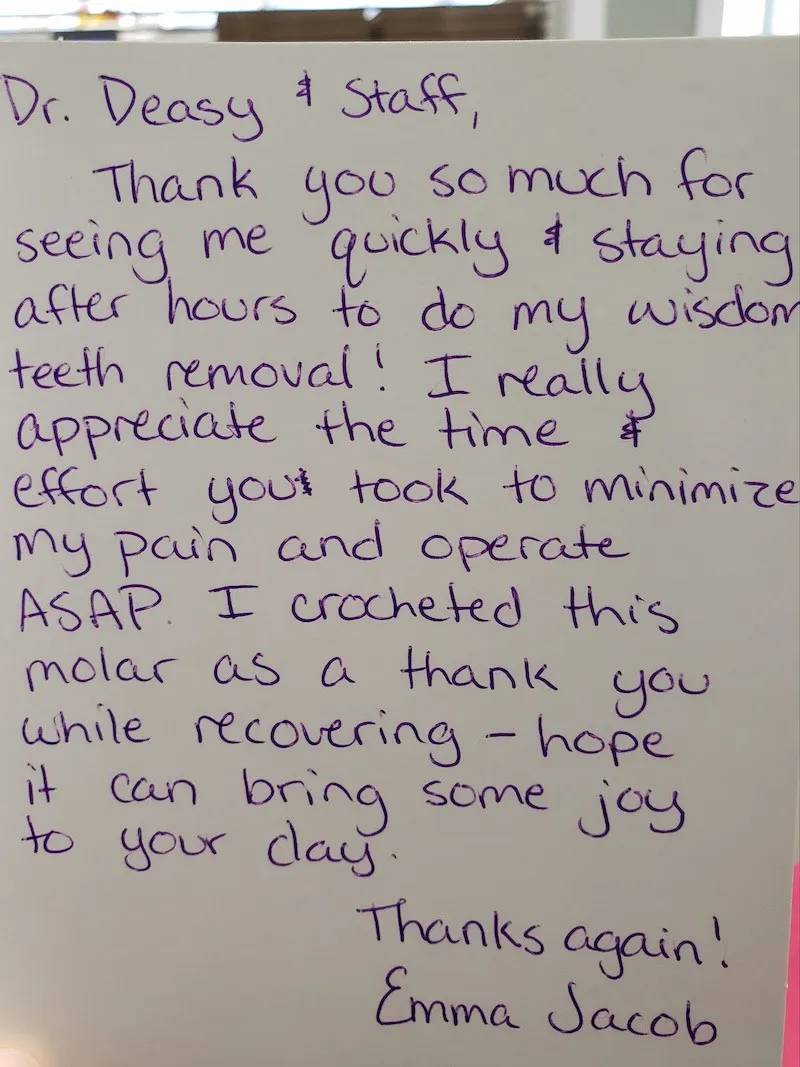 Dr. Deasy & Staff,
Thank you so much for
seeing me quickly & staying
after hours to do my wisdom
teeth removal! I really
appreciate the time &
effort you took to minimize
my pain and operate
ASAP. I crocheted this
molar as a thank you
while recovering – hope
it can bring some joy
to your day.
Thanks again!
Emma Jacob